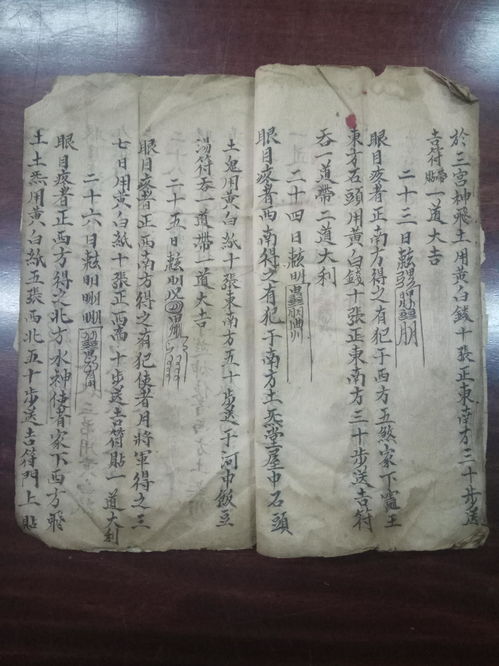 於三宫神飛土用黄白錢十張正東南方三十步送
吉符帶貼一道大吉
二十三日
眼目疼者正南方得之有犯于西方五煞家下竈王
東方石頭用黄白錢十張正東南方三十步送吉符
吞一道帶二道大利
二十四日
眼目疼者西南得之有犯于南方土炁堂屋中石頭
土鬼用黄白紙十張東南方五十步送于河中飯豆
湯符吞一道帶一道大吉
二十五日
眼目疼者正西南方得之有犯使者月將軍得之三
七日用黄白紙十張正西南十步送吉符貼一道大利
二十六日
眼目疼者正西方得之北方水神使者家下西方飛
王土炁用黄白紙五張西北五十步送吉符門上貼